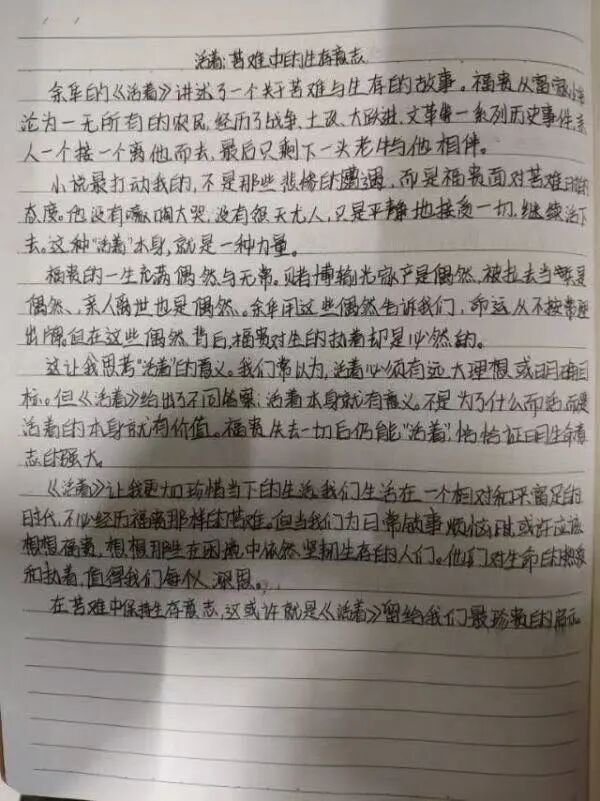 活着:苦难中的生存意志
余华的《活着》讲述了一个关于苦难与生存的故事。福贵从富家
沦为一无所有的农民,经历了战争、土改、大跃进、文革等一系列历史事件,亲
人一个接一个离他而去,最后只剩下一头老牛与他相伴。
小说最打动我的,不是那些悲惨的遭遇,而是福贵面对苦难时的
态度。他没有嚎啕大哭,没有怨天尤人,只是平静地接受一切,继续活下
去。这种"活着"本身,就是一种力量。
福贵的一生充满偶然与无常。赌博输光家产是偶然,被拉去当是
偶然、亲人离世也是偶然。余华用这些偶然告诉我们,命运从不按常理
出牌。但在这些偶然背后,福贵对生的执着却是必然的。
这让我思考"活着"的意义。我们常以为,活着必须有远大理想或明确目
标。但《活着》给出了不同答案:活着本身就有意义。不是为了什么而活,而是
活着的本身就有价值。福贵失去一切后仍能"活着",恰恰证明生命意
志的强大。
《活着》让我更加珍惜当下的生活。我们生活在一个相对和平富足的
时代,不必经历福贵那样的苦难。但当我们为日常琐事烦恼时,或许应该
想想福贵,想想那些在困境中依然坚韧生存的人们。他们对生命的热爱
和执着,值得我们每个人深思。
在苦难中保持生存意志,这或许就是《活着》留给我们最珍贵的启示